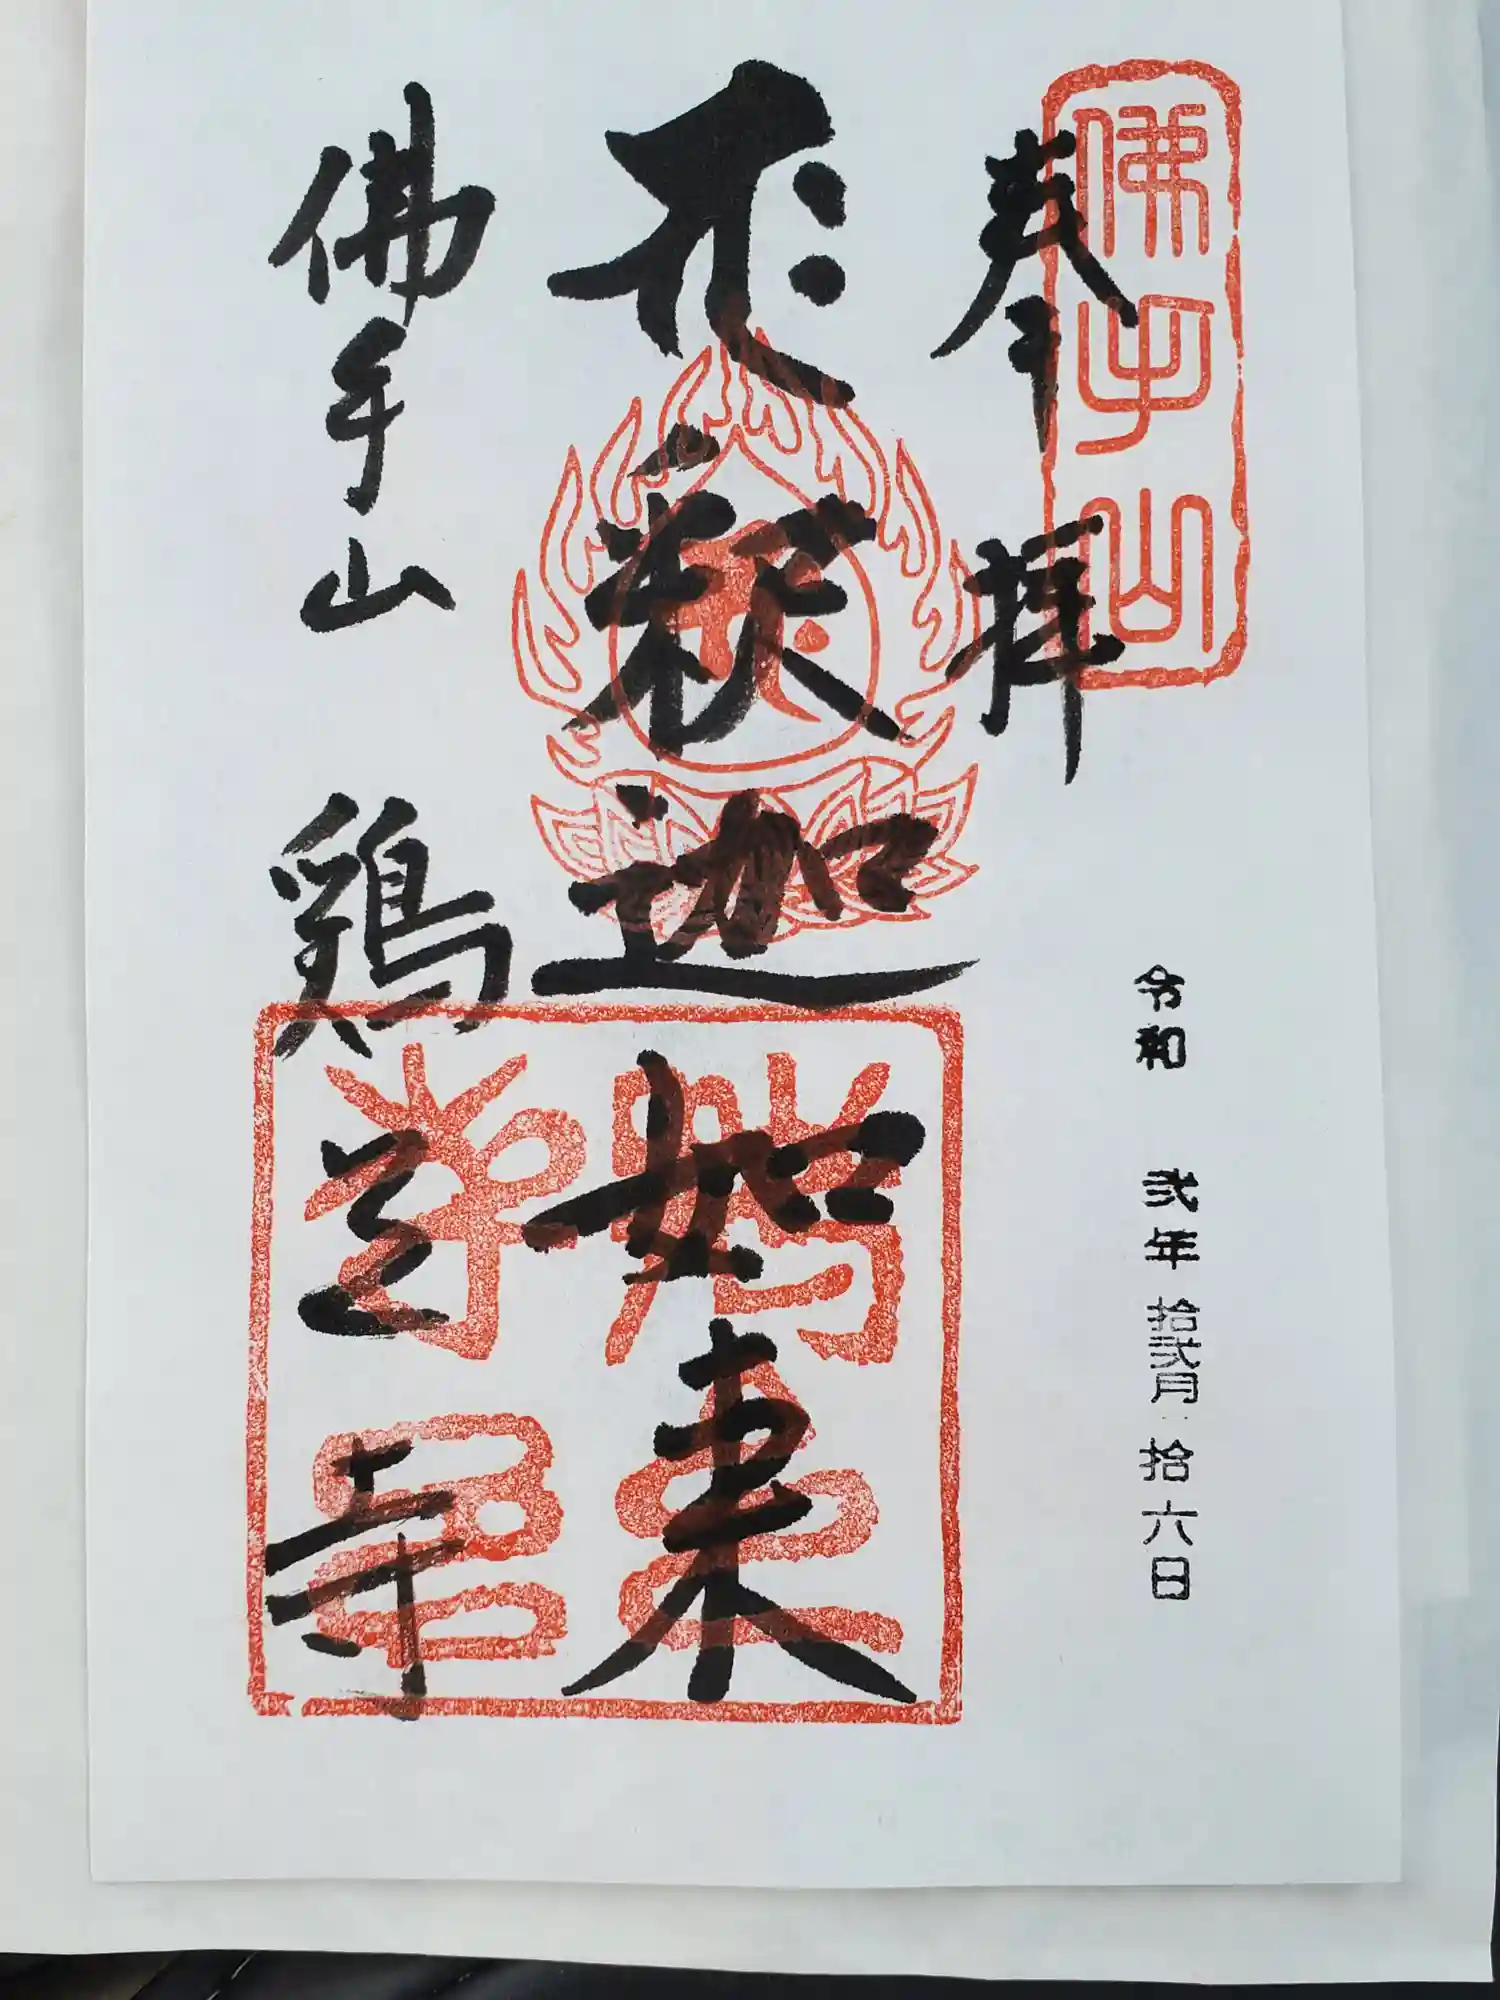 佛手山
奉拝
令和 弐年 拾弐月 拾六日
𑖥𑖾 釈迦如来
鶏足寺印
佛手山 鶏足寺